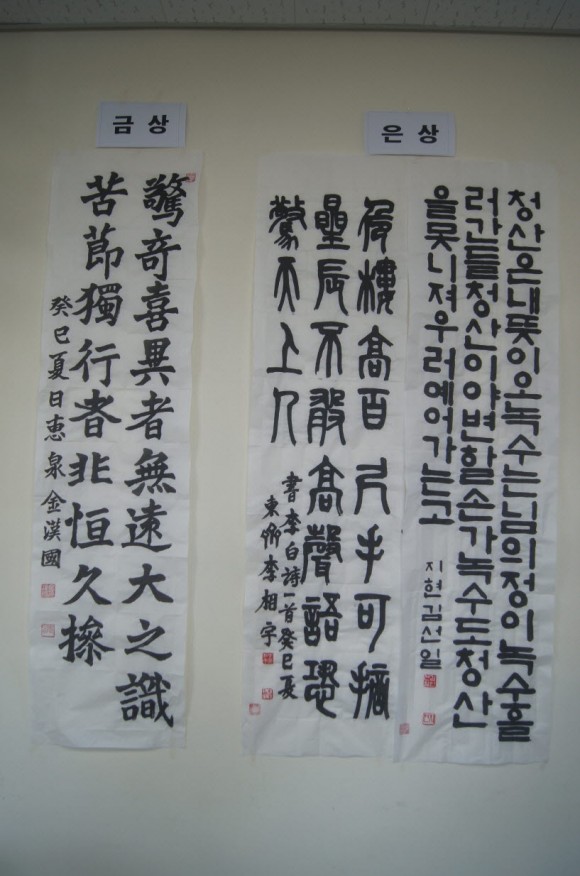 금 상
驚奇喜異者無遠大之識
苦節獨行者非恒久操
癸巳夏日惠泉金漢國
은 상
청산은내뜻이오녹수는님의정이녹수흘
러간들청산이야변할손가녹수도청산
을못니져우러예어가는고
지현김선일
危樓高百尺手可摘
星辰不敢高聲語恐
驚天上人
書李白詩一首癸巳夏
東 李相宇